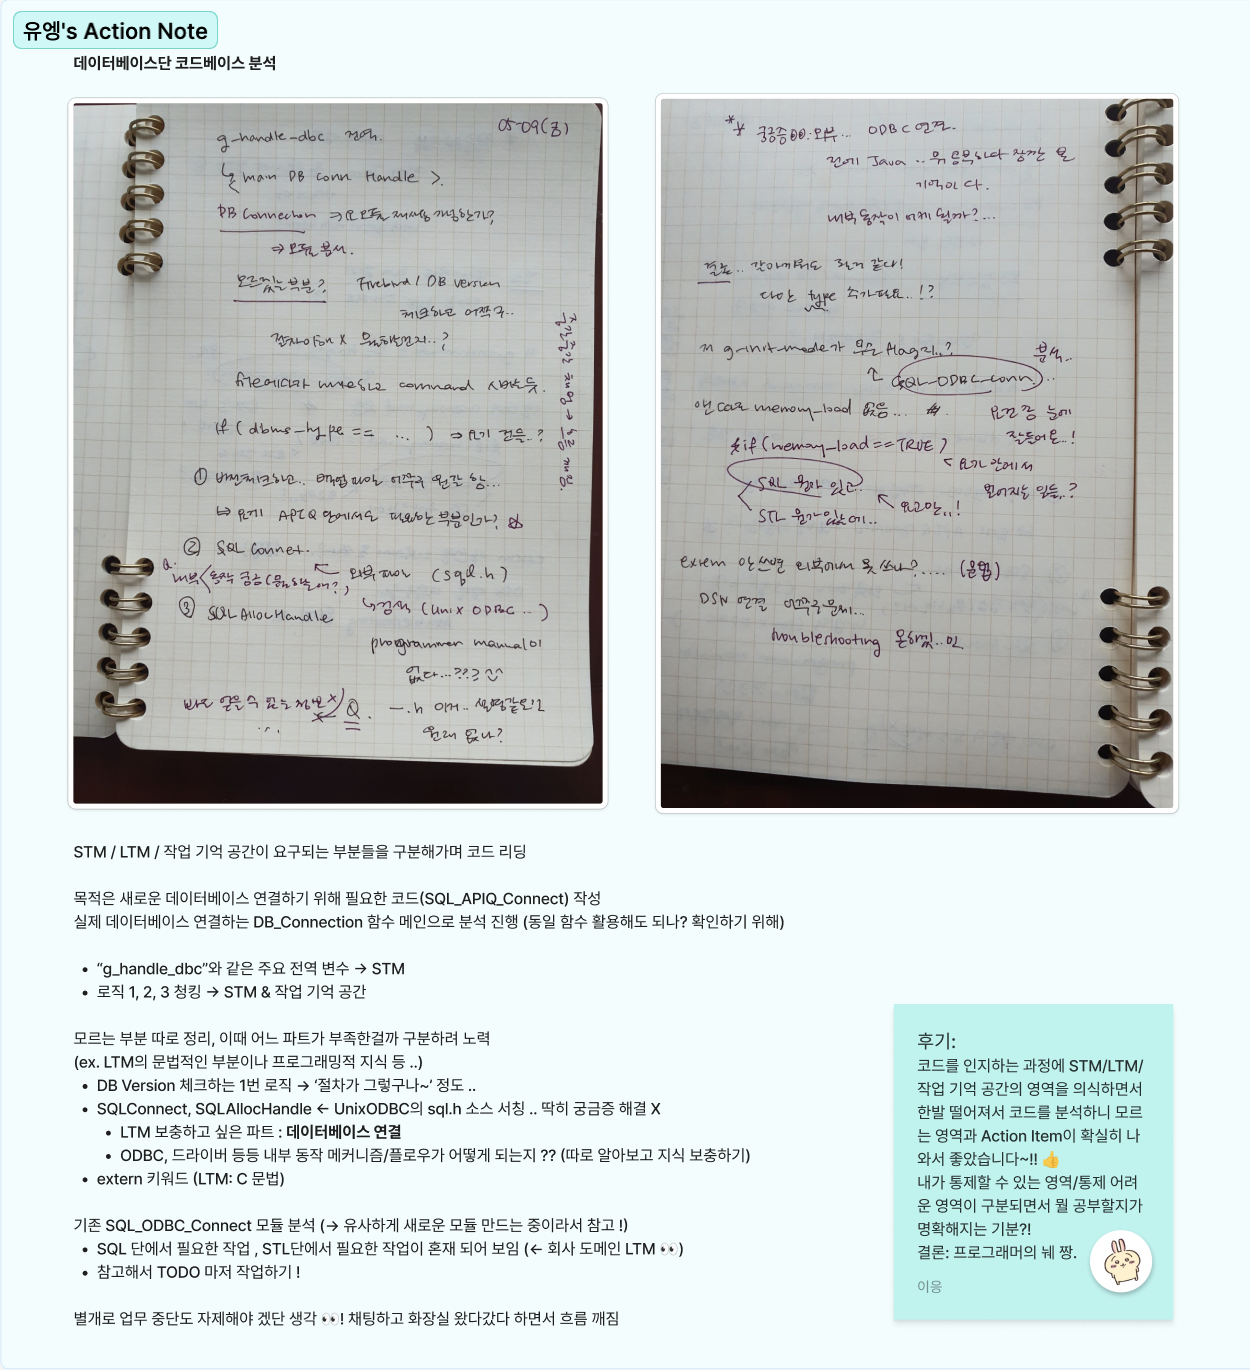 유엥's Action Note
데이터베이스단 코드베이스 분석
05-09(금)
g_handle_dbc 전역.
< main DB conn Handle >.
DB Connection
⇒ 모듈 분석.
모르겠는 부분? Firebird / DB version
체크하고 어쩌구..
절차이해 X
command
if (dbms_type == ... ) ⇒ 여기 건은..?
①
② SQL Connet.
외부 파일 (sql.h)
③ SQLAllocHandle
↳ 검색 (Unix ODBC ..)
programmer manual이
없다...???
Q. —.h 이거..
원래 없나?
중간중간 채팅 → 흐름 깨짐.
ODBC 연결.
전에 Java ..
기억이 다.
내부동작이 어케 될까?...
결론..
다만 type 추가필요..!?
저 g_init_mode가 무슨 flag지..?
분석..
SQL_ODBC_Conn. ..
memory_load 없음...
요런 게 눈에
잘들어온..!
if (memory_load == TRUE)
요기 안에서
SQL 뭔가 있고.
STL 뭔가있는데..
요고만..!
extern 안쓰면 외부에서 못 쓰나?.... (문법)
DSN 연결 어쩌구 문제...
troubleshooting
STM / LTM / 작업 기억 공간이 요구되는 부분들을 구분해가며 코드 리딩
목적은 새로운 데이터베이스 연결하기 위해 필요한 코드(SQL_APIQ_Connect) 작성
실제 데이터베이스 연결하는 DB_Connection 함수 메인으로 분석 진행 (동일 함수 활용해도 되나? 확인하기 위해)
• “g_handle_dbc”와 같은 주요 전역 변수 → STM
• 로직 1, 2, 3 청킹 → STM & 작업 기억 공간
모르는 부분 따로 정리, 이때 어느 파트가 부족한걸까 구분하려 노력
(ex. LTM의 문법적인 부분이나 프로그래밍적 지식 등 ..)
• DB Version 체크하는 1번 로직 → ‘절차가 그렇구나~’ 정도 ..
• SQLConnect, SQLAllocHandle ← UnixODBC의 sql.h 소스 서칭 .. 딱히 궁금증 해결 X
• LTM 보충하고 싶은 파트 : 데이터베이스 연결
• ODBC, 드라이버 등등 내부 동작 메커니즘/플로우가 어떻게 되는지 ?? (따로 알아보고 지식 보충하기)
• extern 키워드 (LTM: C 문법)
기존 SQL_ODBC_Connect 모듈 분석 (→ 유사하게 새로운 모듈 만드는 중이라서 참고 !)
• SQL 단에서 필요한 작업 , STL단에서 필요한 작업이 혼재 되어 보임 (← 회사 도메인 LTM 👀)
• 참고해서 TODO 마저 작업하기 !
별개로 업무 중단도 자제해야 겠단 생각 👀! 채팅하고 화장실 왔다갔다 하면서 흐름 깨짐
후기:
코드를 인지하는 과정에 STM/LTM/
작업 기억 공간의 영역을 의식하면서
한발 떨어져서 코드를 분석하니 모르
는 영역과 Action Item이 확실히 나
와서 좋았습니다~!! 👍
내가 통제할 수 있는 영역/통제 어려
운 영역이 구분되면서 뭘 공부할지가
명확해지는 기분?!
결론: 프로그래머의 뉴ᅦ 짱.
이응